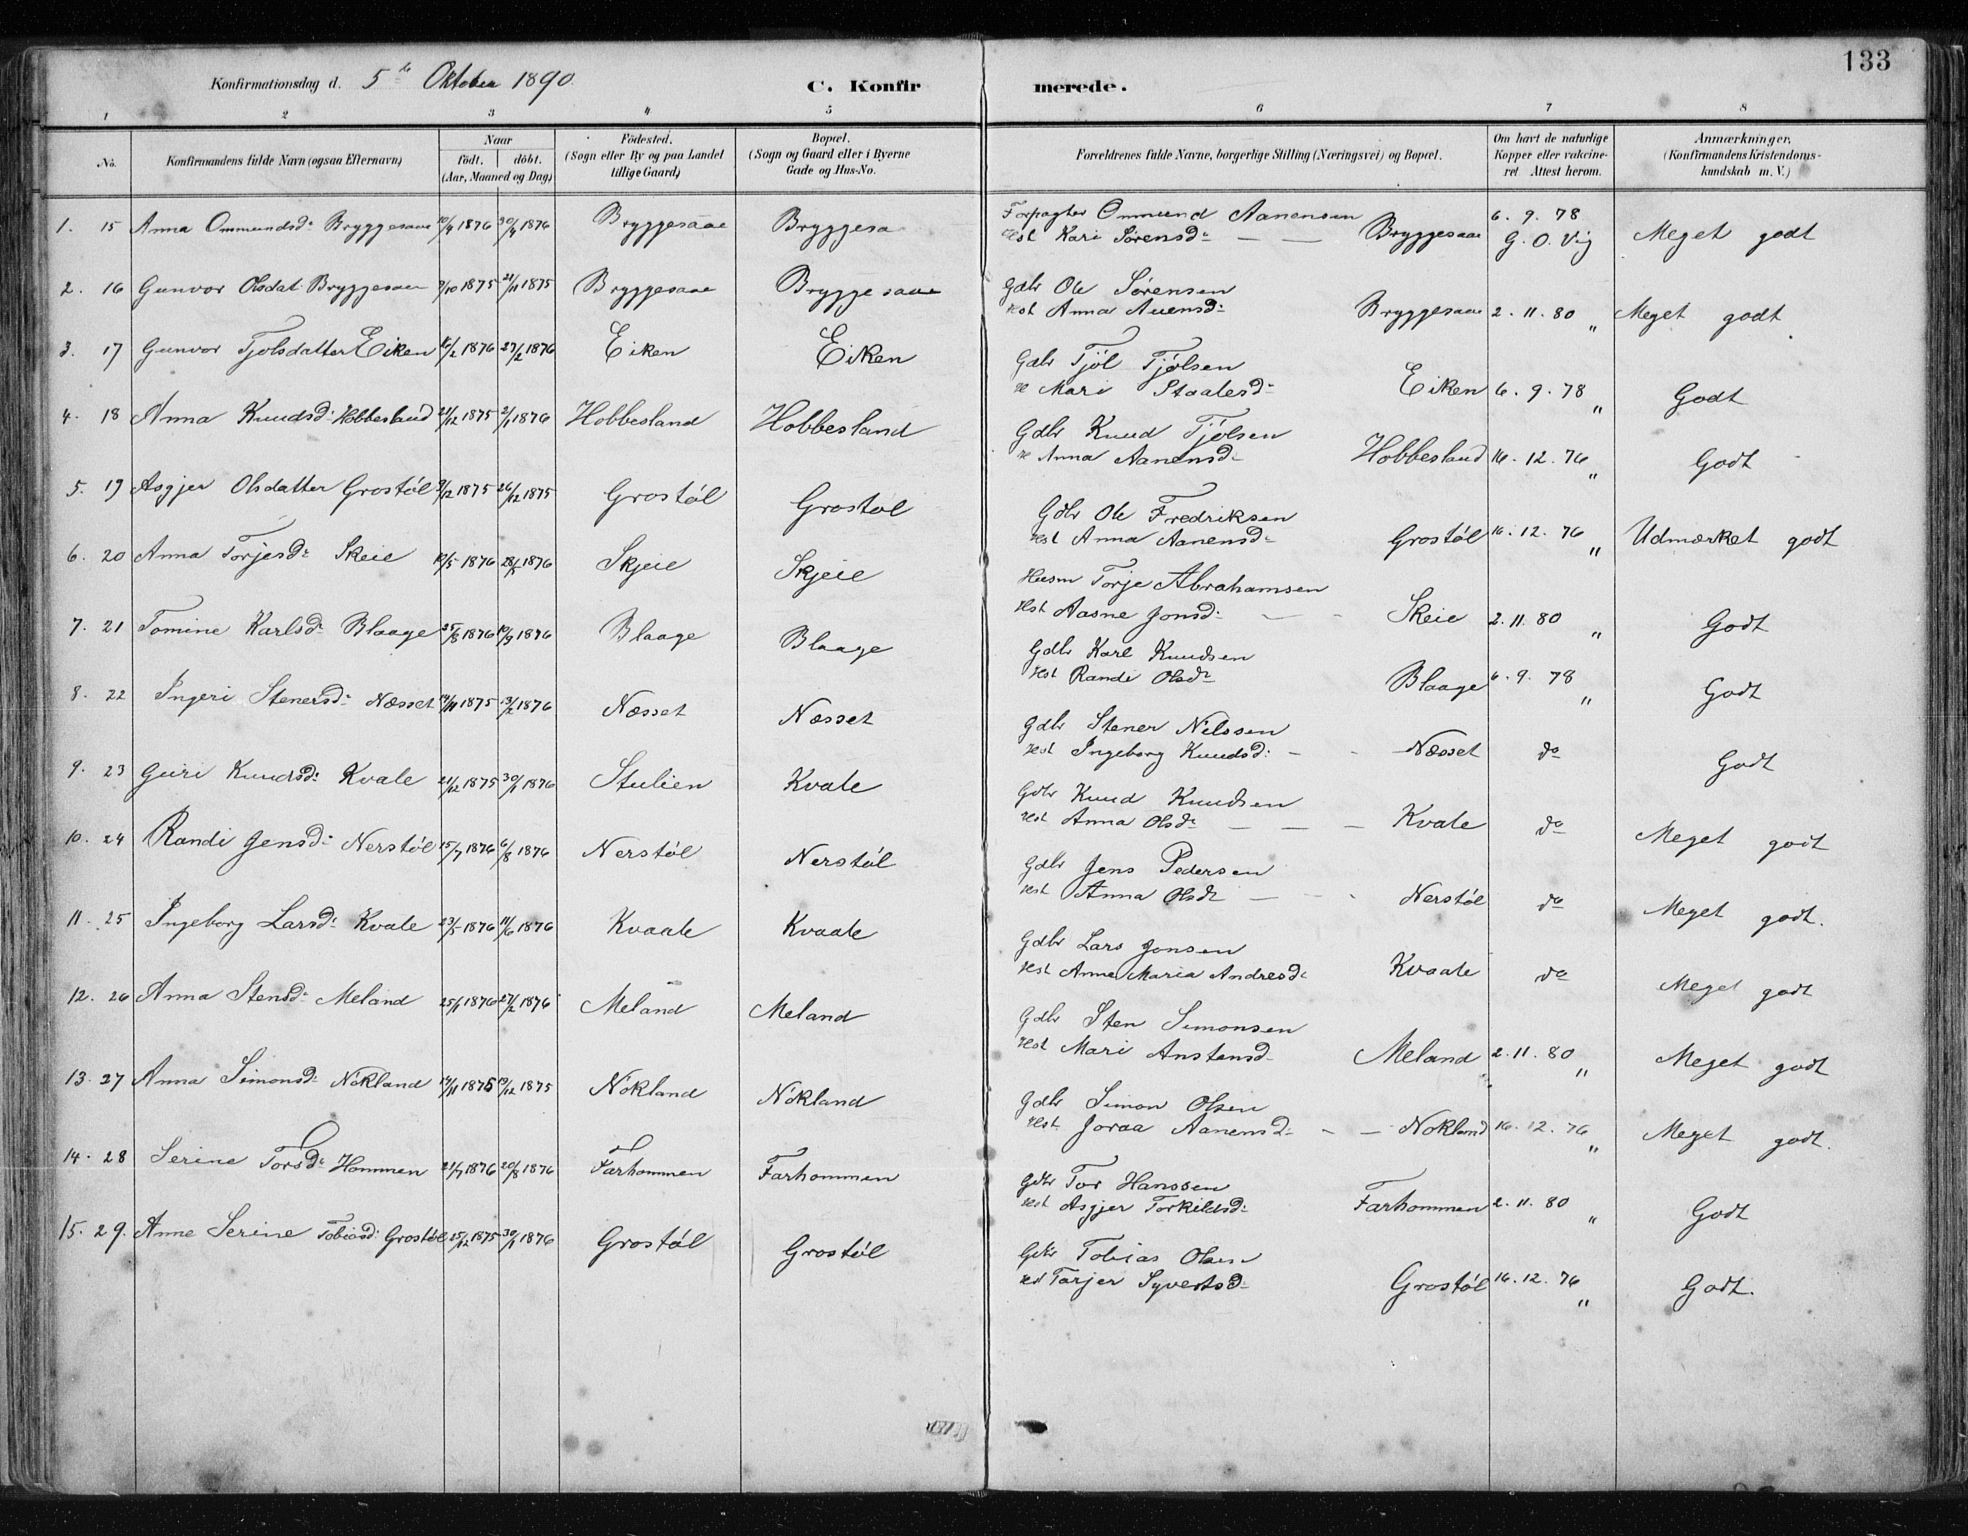 133
Konfirmationsdag d. 5te Oktober 1890. C. Konfirmerede.
1 2 3 4 5 6 7 8
No. Konfirmandens fulde Navn (ogsaa Efternavn) Naar födt. döbt. (Aar, Maaned og Dag) Födested. (Sogn eller By og paa Landet tillige Gaard) Bopæl. (Sogn og Gaard eller i Byerne Gade og Hus-No. Forældrenes fulde Navne, borgerlige Stilling (Næringsvei) og Bopæl. Om havt de naturlige Kopper eller vakcineret Attest herom. Anmærkninger. (Konfirmandens Kristendomskundskab m. V.)
1. 15 Anna Ommundsd: Bryggesaae 10/4 1876 30/4 1876 Bryggesaae Bryggesa Forpagter Ommund Aanensen 6. 9. 78
Hst Kari Sørensd: — — Bryggesaae G. O. Vig Meget godt
2. 16 Gunvor Olsdat Bryggesaae 9/10 1875 21/11 1875 Bryggesaae Bryggesaae Gdbr Ole Sørensen
Hst Anna Auensd: Bryggesaae 2. 11. 80 " Meget godt
3. 17 Gunvor Tjølsdatter Eiken 16/2 1876 27/2 1876 Eiken Eiken Gdbr Tjøl Tjølsen
H Mari Staalesd: Eiken 6. 9. 78 " Godt
4. 18 Anna Knudsd: Hobbesland 21/12 1875 2/1 1876 Hobbesland Hobbesland Gdbr Knud Tjølsen
H Anna Aanensd: Hobbesland 16. 12. 76 " Godt
5. 19 Asgjer Olsdatter Grostøl 9/12 1875 26/12 1875 Grostøl Grostøl Gdbr Ole Fredriksen
Hst Anna Aanensd: Grostøl 16. 12. 76 " Udmærket godt
6. 20 Anna Torjesd: Skeie 12/5 1876 28/5 1876 Skjeie Skjeie Husm Torje Abrahamsen
Hst Aasne Jonsd: — Skeie 2. 11. 80 " Godt
7. 21 Tomine Karlsd: Blaage 25/8 1876 10/9 1876 Blaage Blaage Gdbr Karl Knudsen
Hst Randi Olsd: Blaage 6. 9. 78 " Godt
8. 22 Ingeri Stenersd: Næsset 19/11 1875 13/2 1876 Næsset Næsset Gdbr Stener Nilssen
Hst Ingeborg Knudsd: - - Næsset do Godt
9. 23 Guri Knudsd: Kvale 21/12 1875 30/1 1876 Stulien Kvale Gdbr Knud Knudsen
Hst Anna Olsd: — — — Kvale do Meget godt
10. 24 Randi Jensd: Nerstøl 15/7 1876 6/8 1876 Nerstøl Nerstøl Gdbr Jens Pedersen
Hst Anna Olsd: — - - Nerstøl do Meget godt.
11. 25 Ingeborg Larsd: Kvale 23/5 1876 11/6 1876 Kvaale Kvaale Gdbr Lars Jonsen
Hst Anne Maria Andresd: Kvaale do Meget godt
12. 26 Anna Stensd: Meland 25/1 1876 27/2 1876 Meland Meland Gdbr Sten Simonsen
Hst Mari Anstensd: Meland 2. 11. 80 " Meget godt
13. 27 Anna Simonsd: Nökland 14/11 1875 19/12 1875 Nökland Nökland Gdbr Simon Olsen
Hst Joraa Aanensd: - — Nokland 16. 12. 76 " Meget godt.
14. 28 Serine Torsd: Hommen 21/7 1876 20/8 1876 Farhommen Farhommen Gdbr Tor Hanssen
Hst Asgjer Torkildsd: Farhommen 2. 11. 80 " Godt
15. 29. Anne Serine Tobiasd: Grostøl 25/12 1875 30/1 1876 Grostøl Grostøl Gdbr Tobias Olsen
Hst Tarjer Syvertsd: Grostøl 16. 12. 76 " Godt.